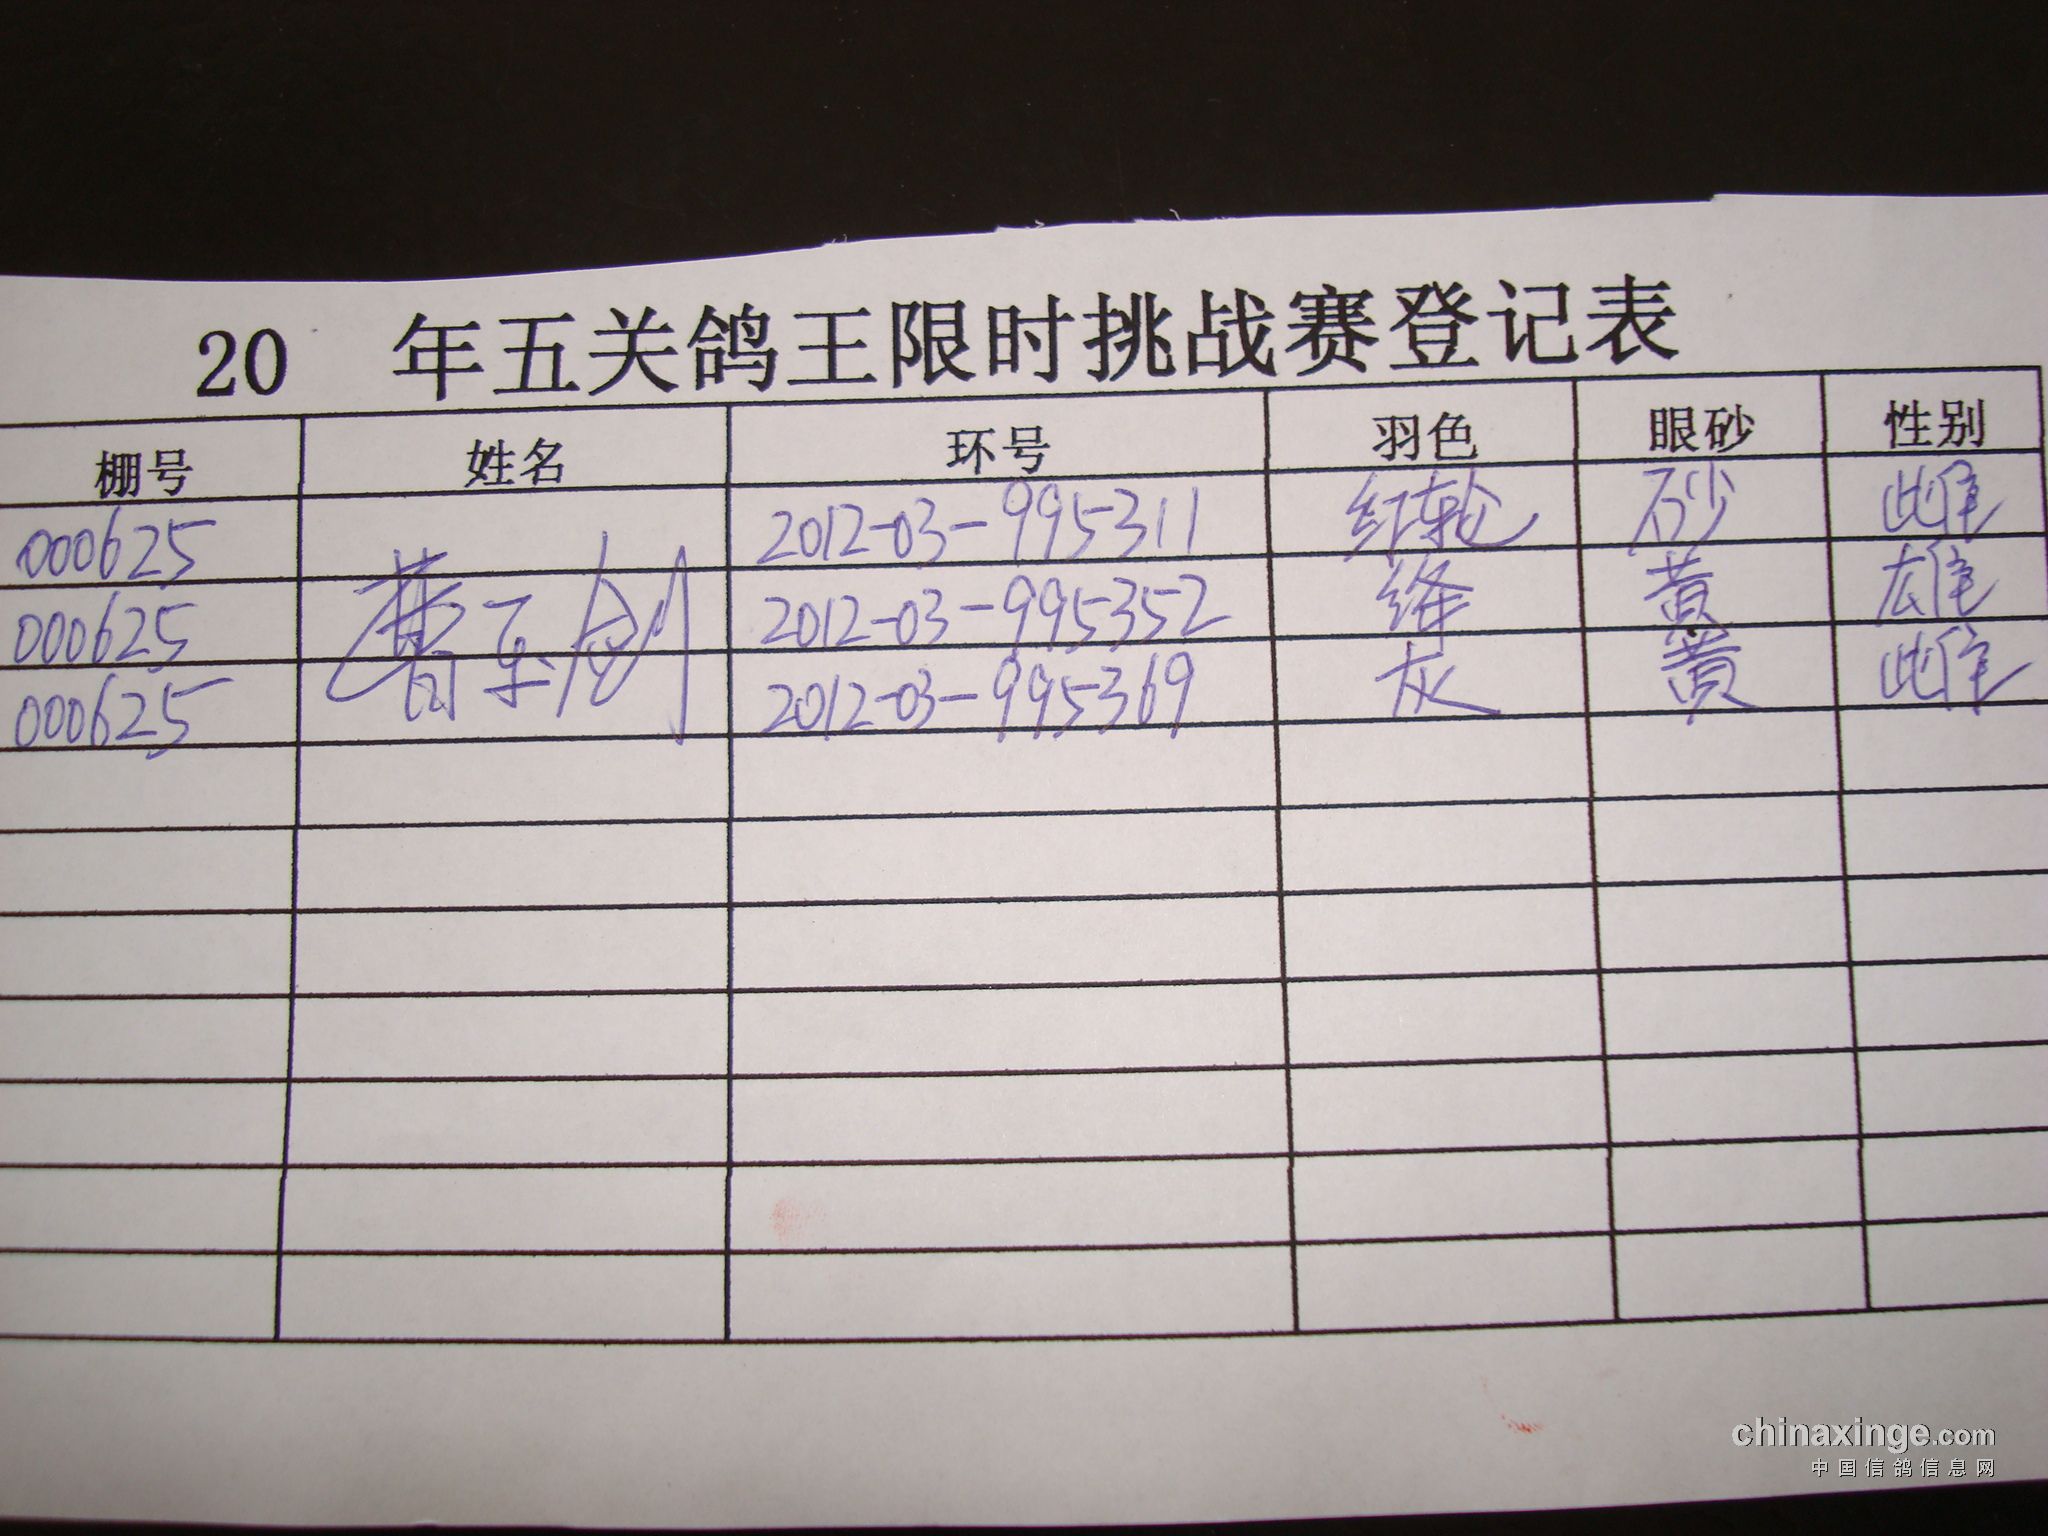 20 年五关鸽王限时挑战赛登记表
棚号 姓名 环号 羽色 眼砂 性别
000625 2012-03-995311 红轮 砂 雌
000625 曹 剑 2012-03-995352 绛 黄 雄
000625 2012-03-995369 灰 黄 雌
chinaxinge.com
中国信鸽信息网